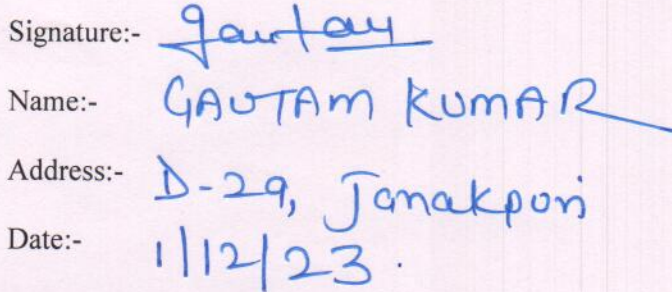 Signature:- Gautam
Name:- GAUTAM KUMAR
Address:- D-29, Janakpuri
Date:- 1/12/23.